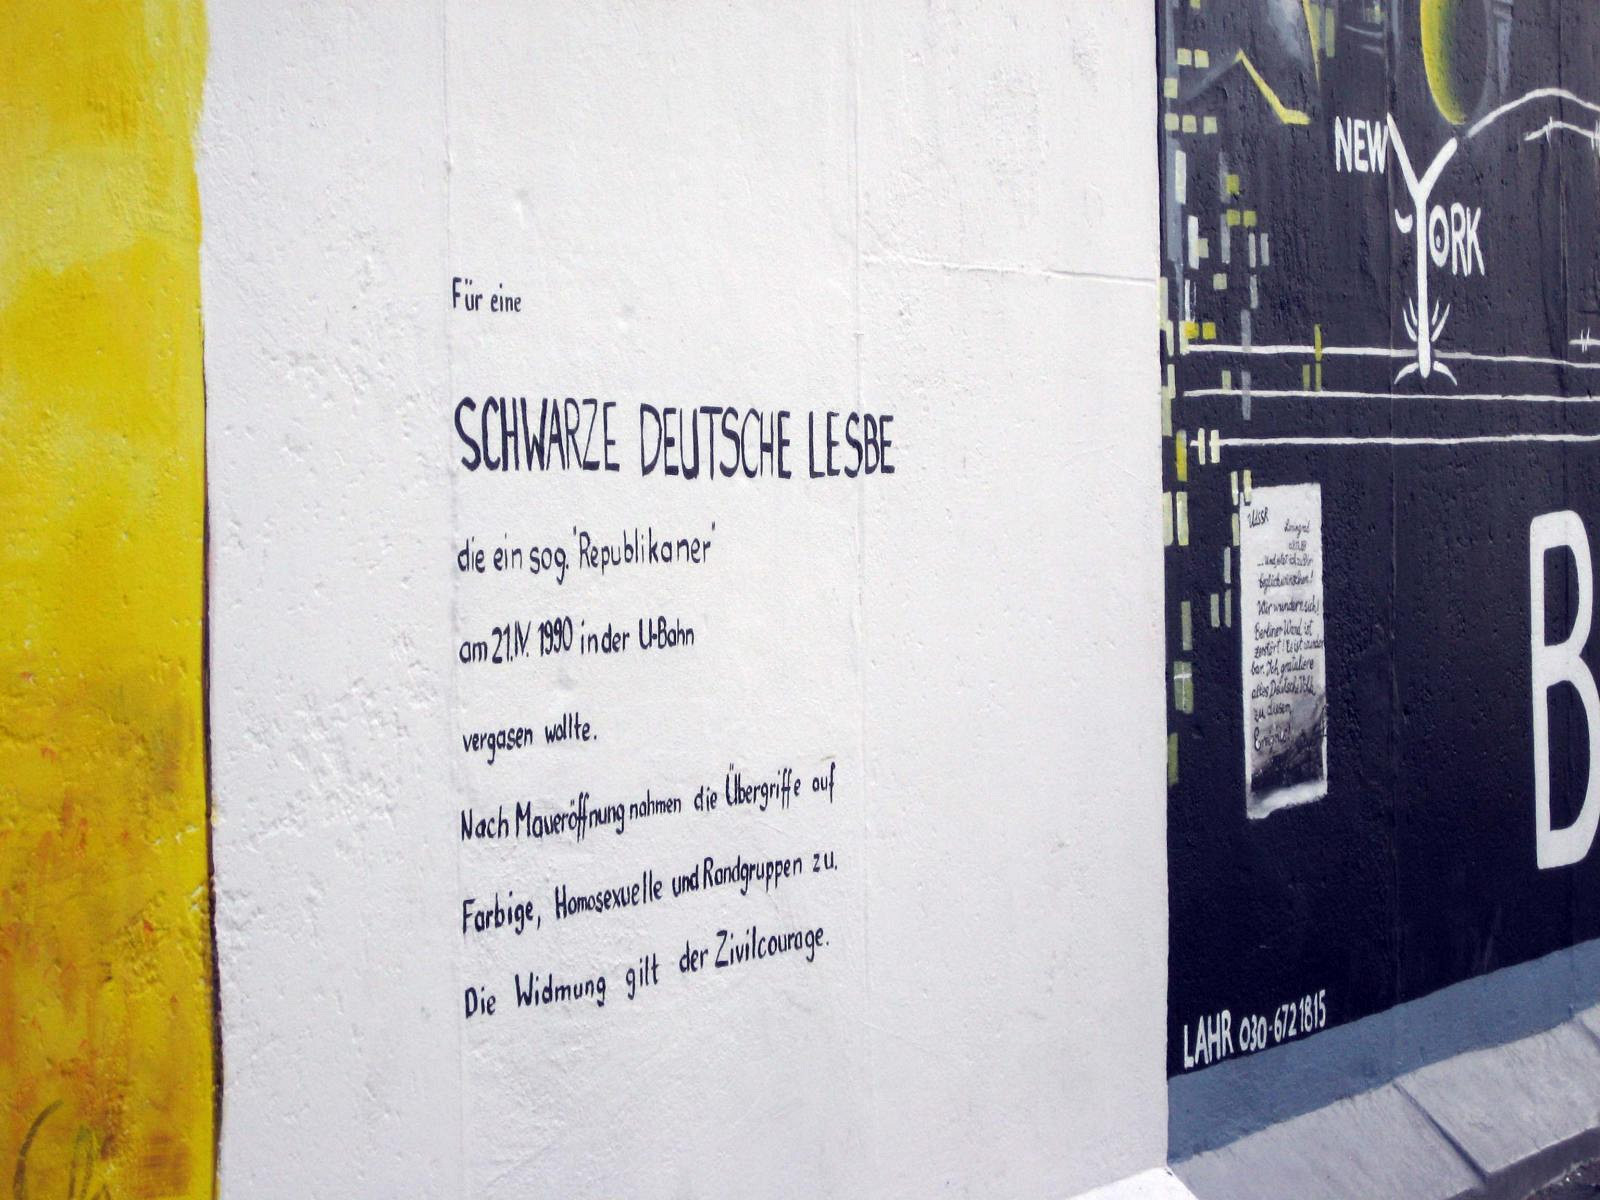 Für eine
SCHWARZE DEUTSCHE LESBE
die ein sog. "Republikaner"
am 21.IV. 1990 in der U-Bahn
vergasen wollte.
Nach Maueröffnung nahmen die Übergriffe auf
Farbige, Homosexuelle und Randgruppen zu.
Die Widmung gilt der Zivilcourage.
NEW
YORK
B
UdSSR
Leningrad
Wir wundern sich!
Berliner Wand ist
zerstört! Es ist wunder
bar. Ich gratuliere
altes Deutsche Volk
zu diesem
Ereignis!
LAHR 030-6721815